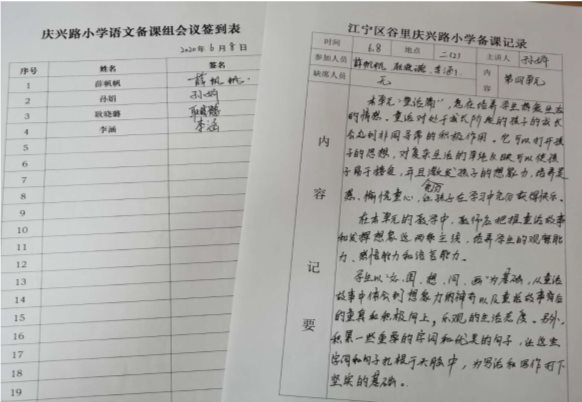 庆兴路小学语文备课组会议签到表
2020年6月8日
序号 姓名 签名
1 薛帆帆 薛帆帆
2 孙娟 孙娟
3 耿晓璐 耿晓璐
4 李涵 李涵
5
6
7
8
9
10
11
12
13
14
15
16
17
18
19
江宁区谷里庆兴路小学备课记录
时间 6.8 地点 二(2) 主讲人 孙娟
参加人员 薛帆帆 耿晓璐 李涵 内容 第四单元
缺席人员 无
内容记要
本单元"童话篇",意在培养学生热爱生活
的情感。童话对处于成长阶段的孩子的成长
会起到非同寻常的积极作用。它可以打开孩
子的思想,对复杂生活的单纯反映可以使孩
子易于接受,并且激发孩子的想象力,培养灵
感、愉悦童心,让孩子在学习中充分获得快乐。
在本单元的教学中,教师应把握童话故事
和发挥想象这两条主线,培养学生的观察能
力、感悟能力和语言能力。
学生以"图、想、问、画"为基础,从童话
故事中体会到想象力的神奇以及童话故事背后
的童真和积极向上、乐观的生活态度。另外,
积累一些重要的字词和优美的句子,让这些
字词和句子扎根于头脑中,为写话和写作打下
坚实的基础。